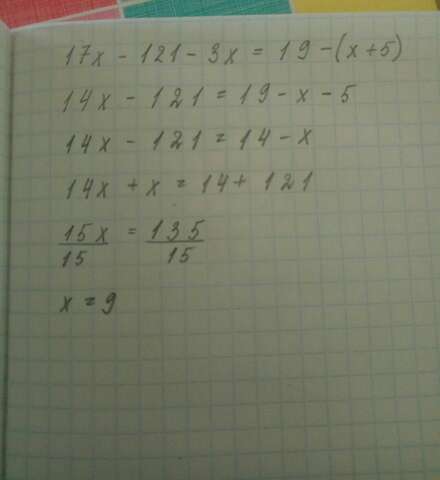 17x - 121 - 3x = 19 - (x+5)
14x - 121 = 19 - x - 5
14x - 121 = 14 - x
14x + x = 14 + 121
15x/15 = 135/15
x = 9